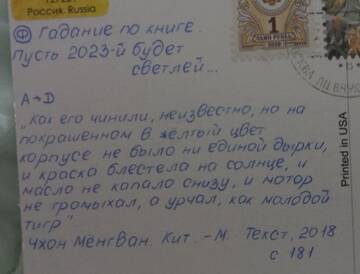 Россия. Russia
Гадание по книге.
Пусть 2023-й будет
светлей...
А→D
"Как его чинили, неизвестно, но на
покрашенном в жёлтый цвет
корпусе не было ни единой дырки,
и краска блестела на солнце, и
масло не капало снизу, и мотор
не громыхал, а урчал, как молодой
тигр"
Чхон Мёнгван. Кит. -М. Текст, 2018
с 181
1
ОДИН РУБЛЬ
Printed in USA